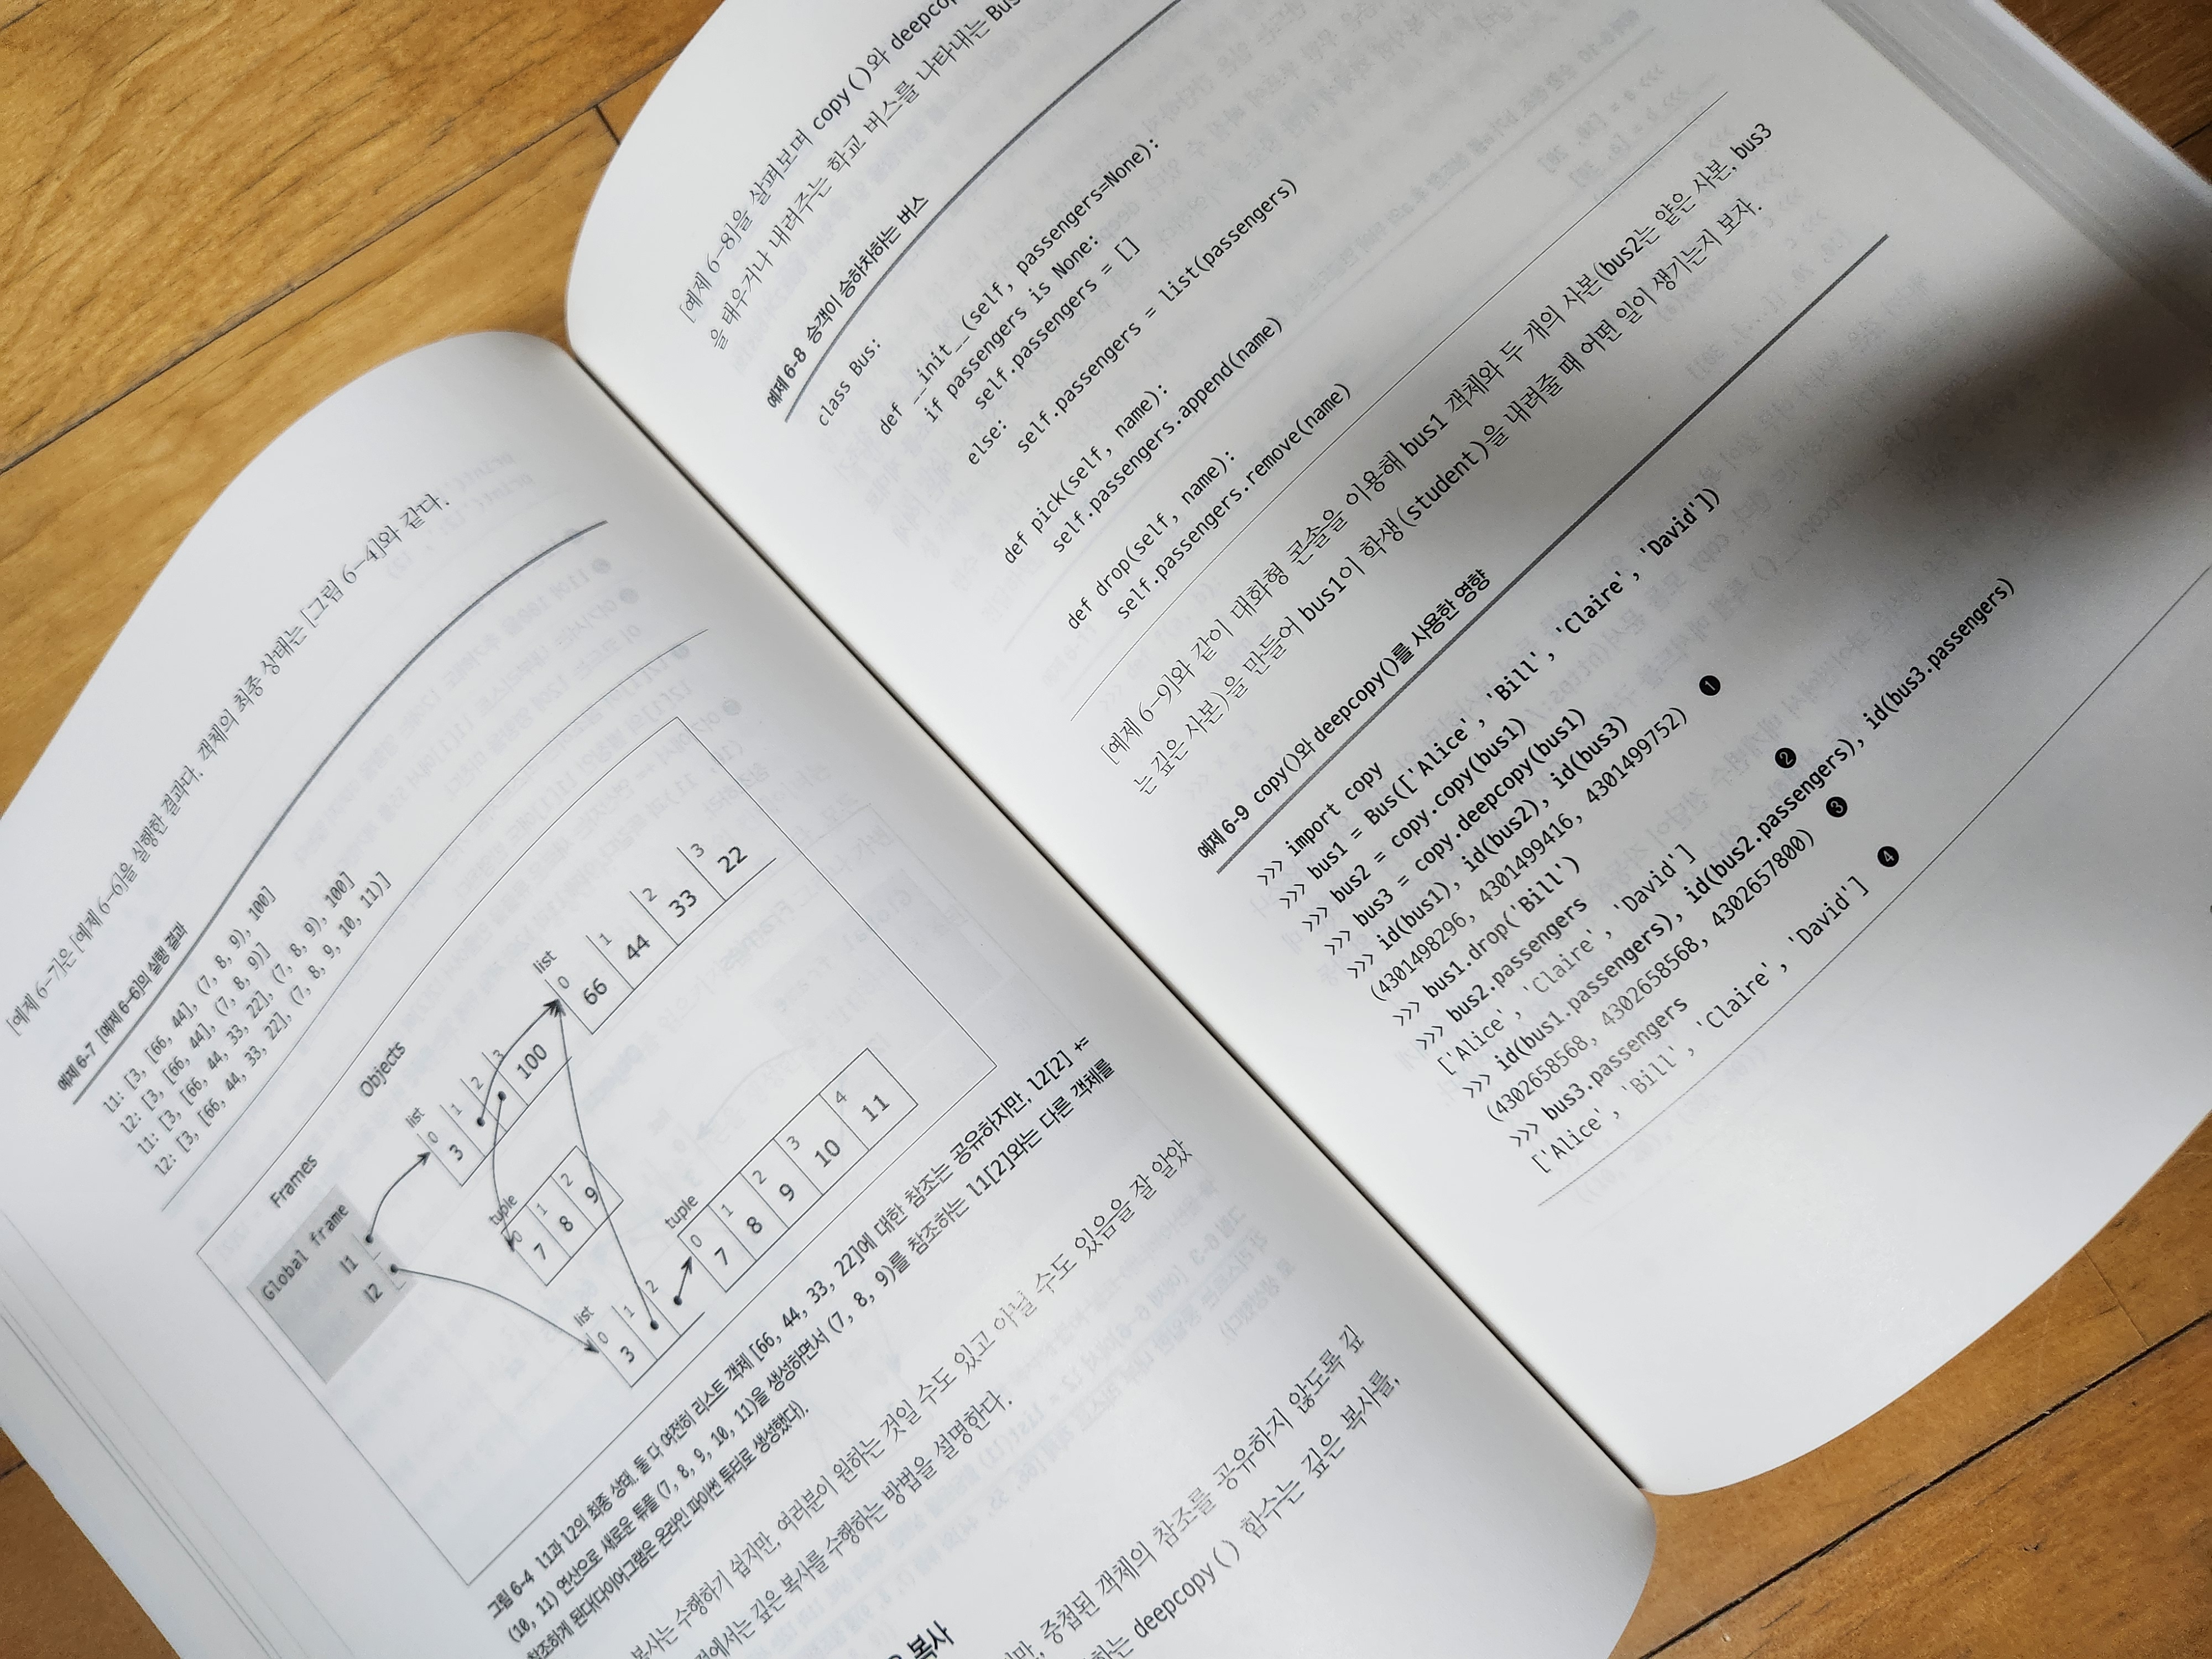 [예제 6-7]은 [예제 6-6]을 실행한 결과다. 객체의 최종 상태는 [그림 6-4]와 같다.
예제 6-7 [예제 6-6]의 실행 결과
l1: [3, [66, 44], (7, 8, 9), 100]
l2: [3, [66, 44], (7, 8, 9)]
l1: [3, [66, 44, 33, 22], (7, 8, 9), 100]
l2: [3, [66, 44, 33, 22], (7, 8, 9, 10, 11)]
Frames Objects
Global frame
l1
l2
list
0 1 2 3
3 100
list
0 1 2 3
66 44 33 22
tuple
0 1 2
7 8 9
list
0 1 2
3
tuple
0 1 2 3 4
7 8 9 10 11
그림 6-4 l1과 l2의 최종 상태. 둘 다 여전히 리스트 객체 [66, 44, 33, 22]에 대한 참조는 공유하지만, l2[2] +=
(10, 11) 연산으로 새로운 튜플 (7, 8, 9, 10, 11)을 생성하면서 (7, 8, 9)를 참조하는 l1[2]와는 다른 객체를
참조하게 된다(다이어그램은 온라인 파이썬 튜터로 생성했다).
복사는 수행하기 쉽지만, 여러분이 원하는 것일 수도 있고 아닐 수도 있음을 잘 알았
에서는 깊은 복사를 수행하는 방법을 설명한다.
복사
만, 중첩된 객체의 참조를 공유하지 않도록 깊
하는 deepcopy() 함수는 깊은 복사를,
[예제 6-8]을 살펴보며 copy()와 deepcop
을 태우거나 내려주는 학교 버스를 나타내는 Bus
예제 6-8 승객이 승하차하는 버스
class Bus:
def __init__(self, passengers=None):
if passengers is None:
self.passengers = []
else:
self.passengers = list(passengers)
def pick(self, name):
self.passengers.append(name)
def drop(self, name):
self.passengers.remove(name)
[예제 6-9]와 같이 대화형 콘솔을 이용해 bus1 객체와 두 개의 사본(bus2는 얕은 사본, bus3
는 깊은 사본)을 만들어 bus1이 학생(student)을 내려줄 때 어떤 일이 생기는지 보자.
예제 6-9 copy()와 deepcopy()를 사용한 영향
>>> import copy
>>> bus1 = Bus(['Alice', 'Bill', 'Claire', 'David'])
>>> bus2 = copy.copy(bus1)
>>> bus3 = copy.deepcopy(bus1)
>>> id(bus1), id(bus2), id(bus3)
(4301498296, 4301499416, 4301499752) ❶
>>> bus1.drop('Bill')
>>> bus2.passengers
['Alice', 'Claire', 'David'] ❷
>>> id(bus1.passengers), id(bus2.passengers), id(bus3.passengers)
(4302658568, 4302658568, 4302657800) ❸
>>> bus3.passengers
['Alice', 'Bill', 'Claire', 'David'] ❹